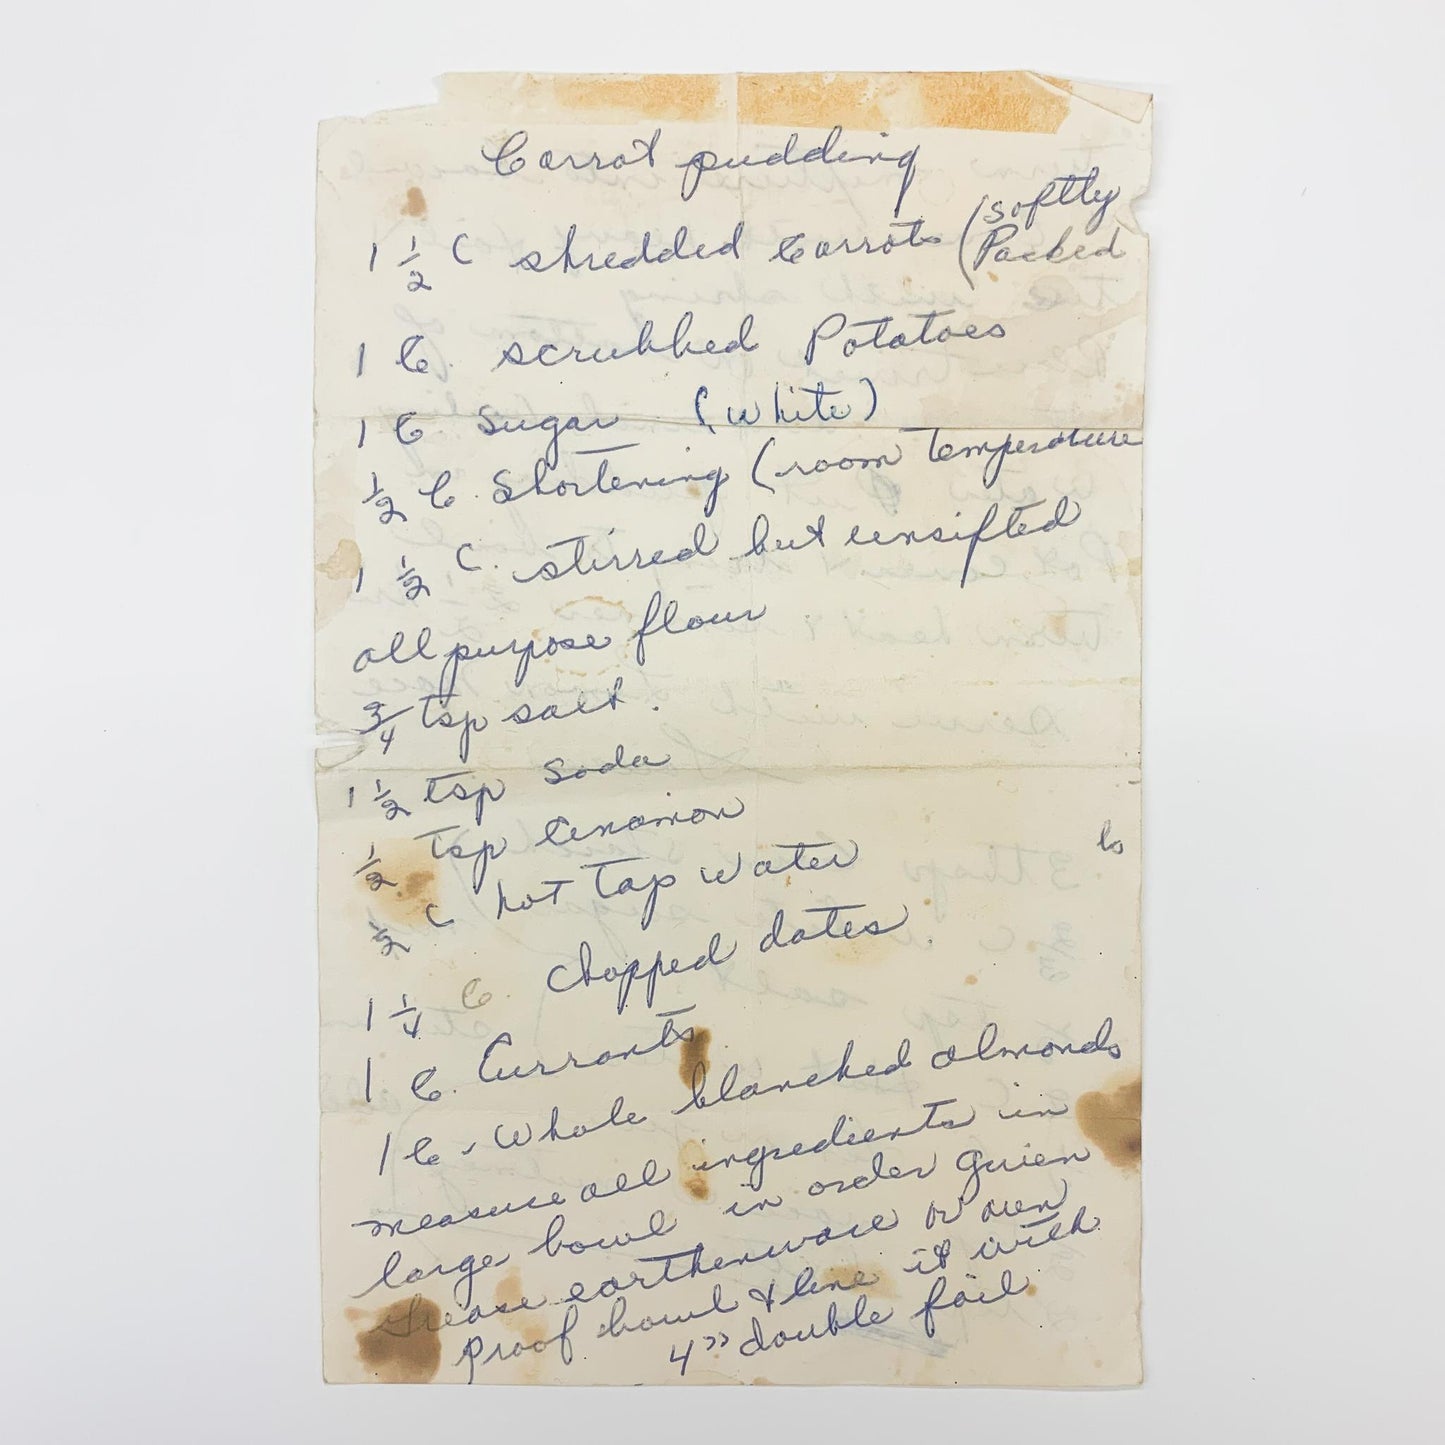 Carrot pudding
1 1/2 C shredded Carrots (softly Packed
1 C. scrubbed Potatoes
1 C Sugar (White)
1/2 C. Shortening (room Temperature
1 1/2 C. stirred but unsifted
all purpose flour
3/4 tsp salt.
1 1/2 tsp Soda
1/2 Tsp Cinamon
1/2 C hot Tap water
1 1/4 C. Chopped dates.
1 C. Currants
1 C. Whole blanched almonds
measure all ingredients in
large bowl in order given
Grease earthenware or oven
Proof bowl & line it with
4" double foil